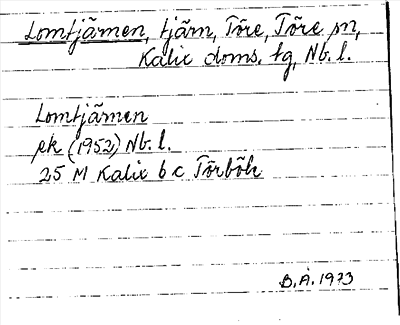 Lomtjärnen, tjärn, Töre, Töre sn,
Kalix doms. tg, Nb. l.
Lomtjärnen
ek (1952) Nb. l.
25 M Kalix 6 c Törböle
B.Å. 1973